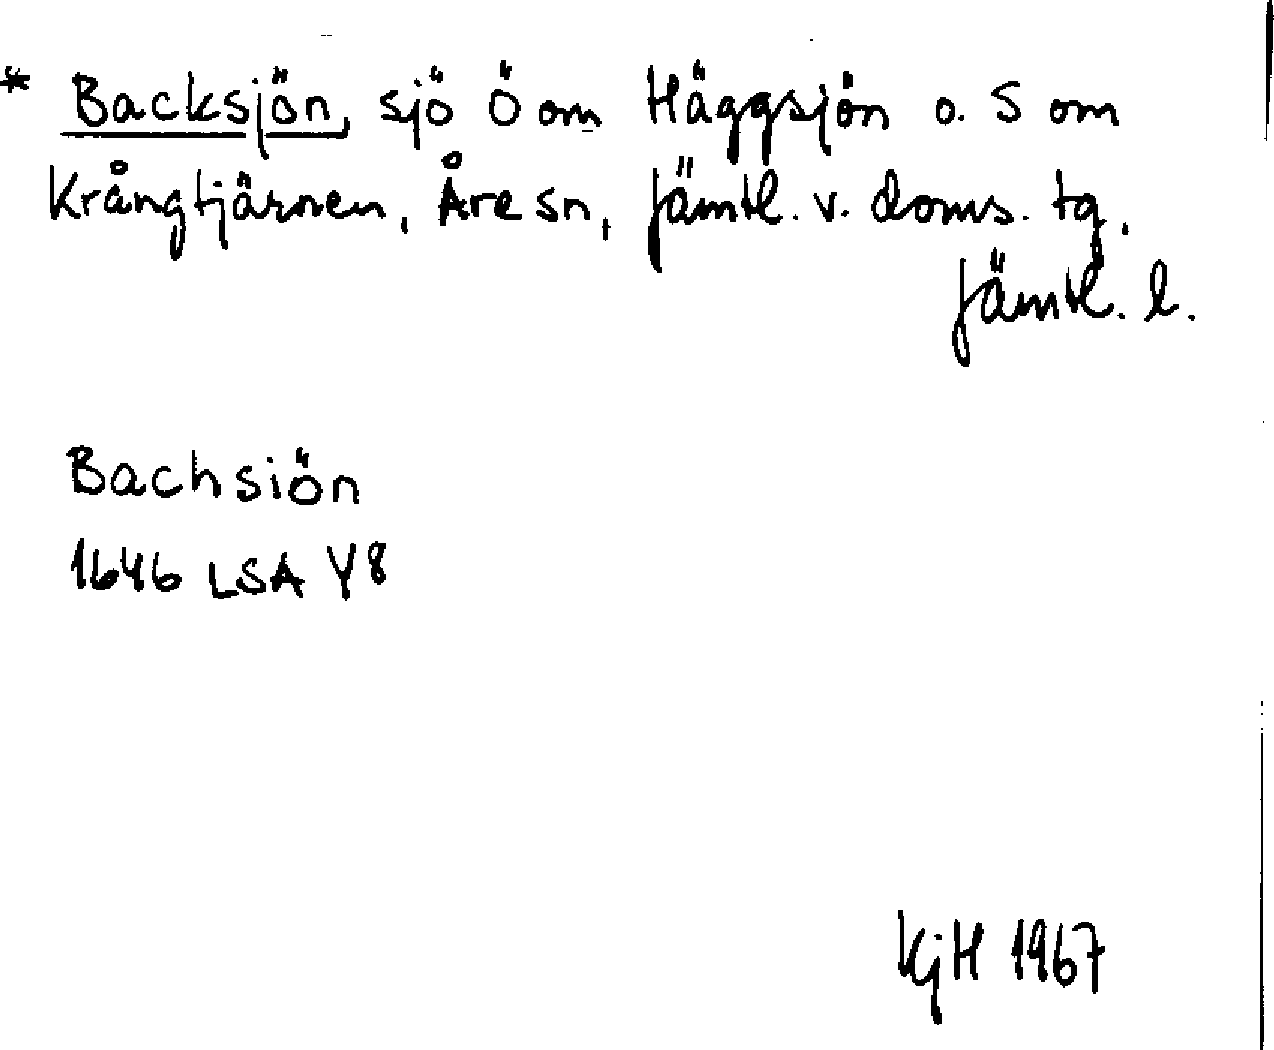 * Backsjön, sjö Ö om Häggsjön o. S om
Krångtjärnen, Åre sn, Jämtl. v. doms. tg.
Jämtl. l.
Bachsiön
1646 LSA Y8
KjH 1967